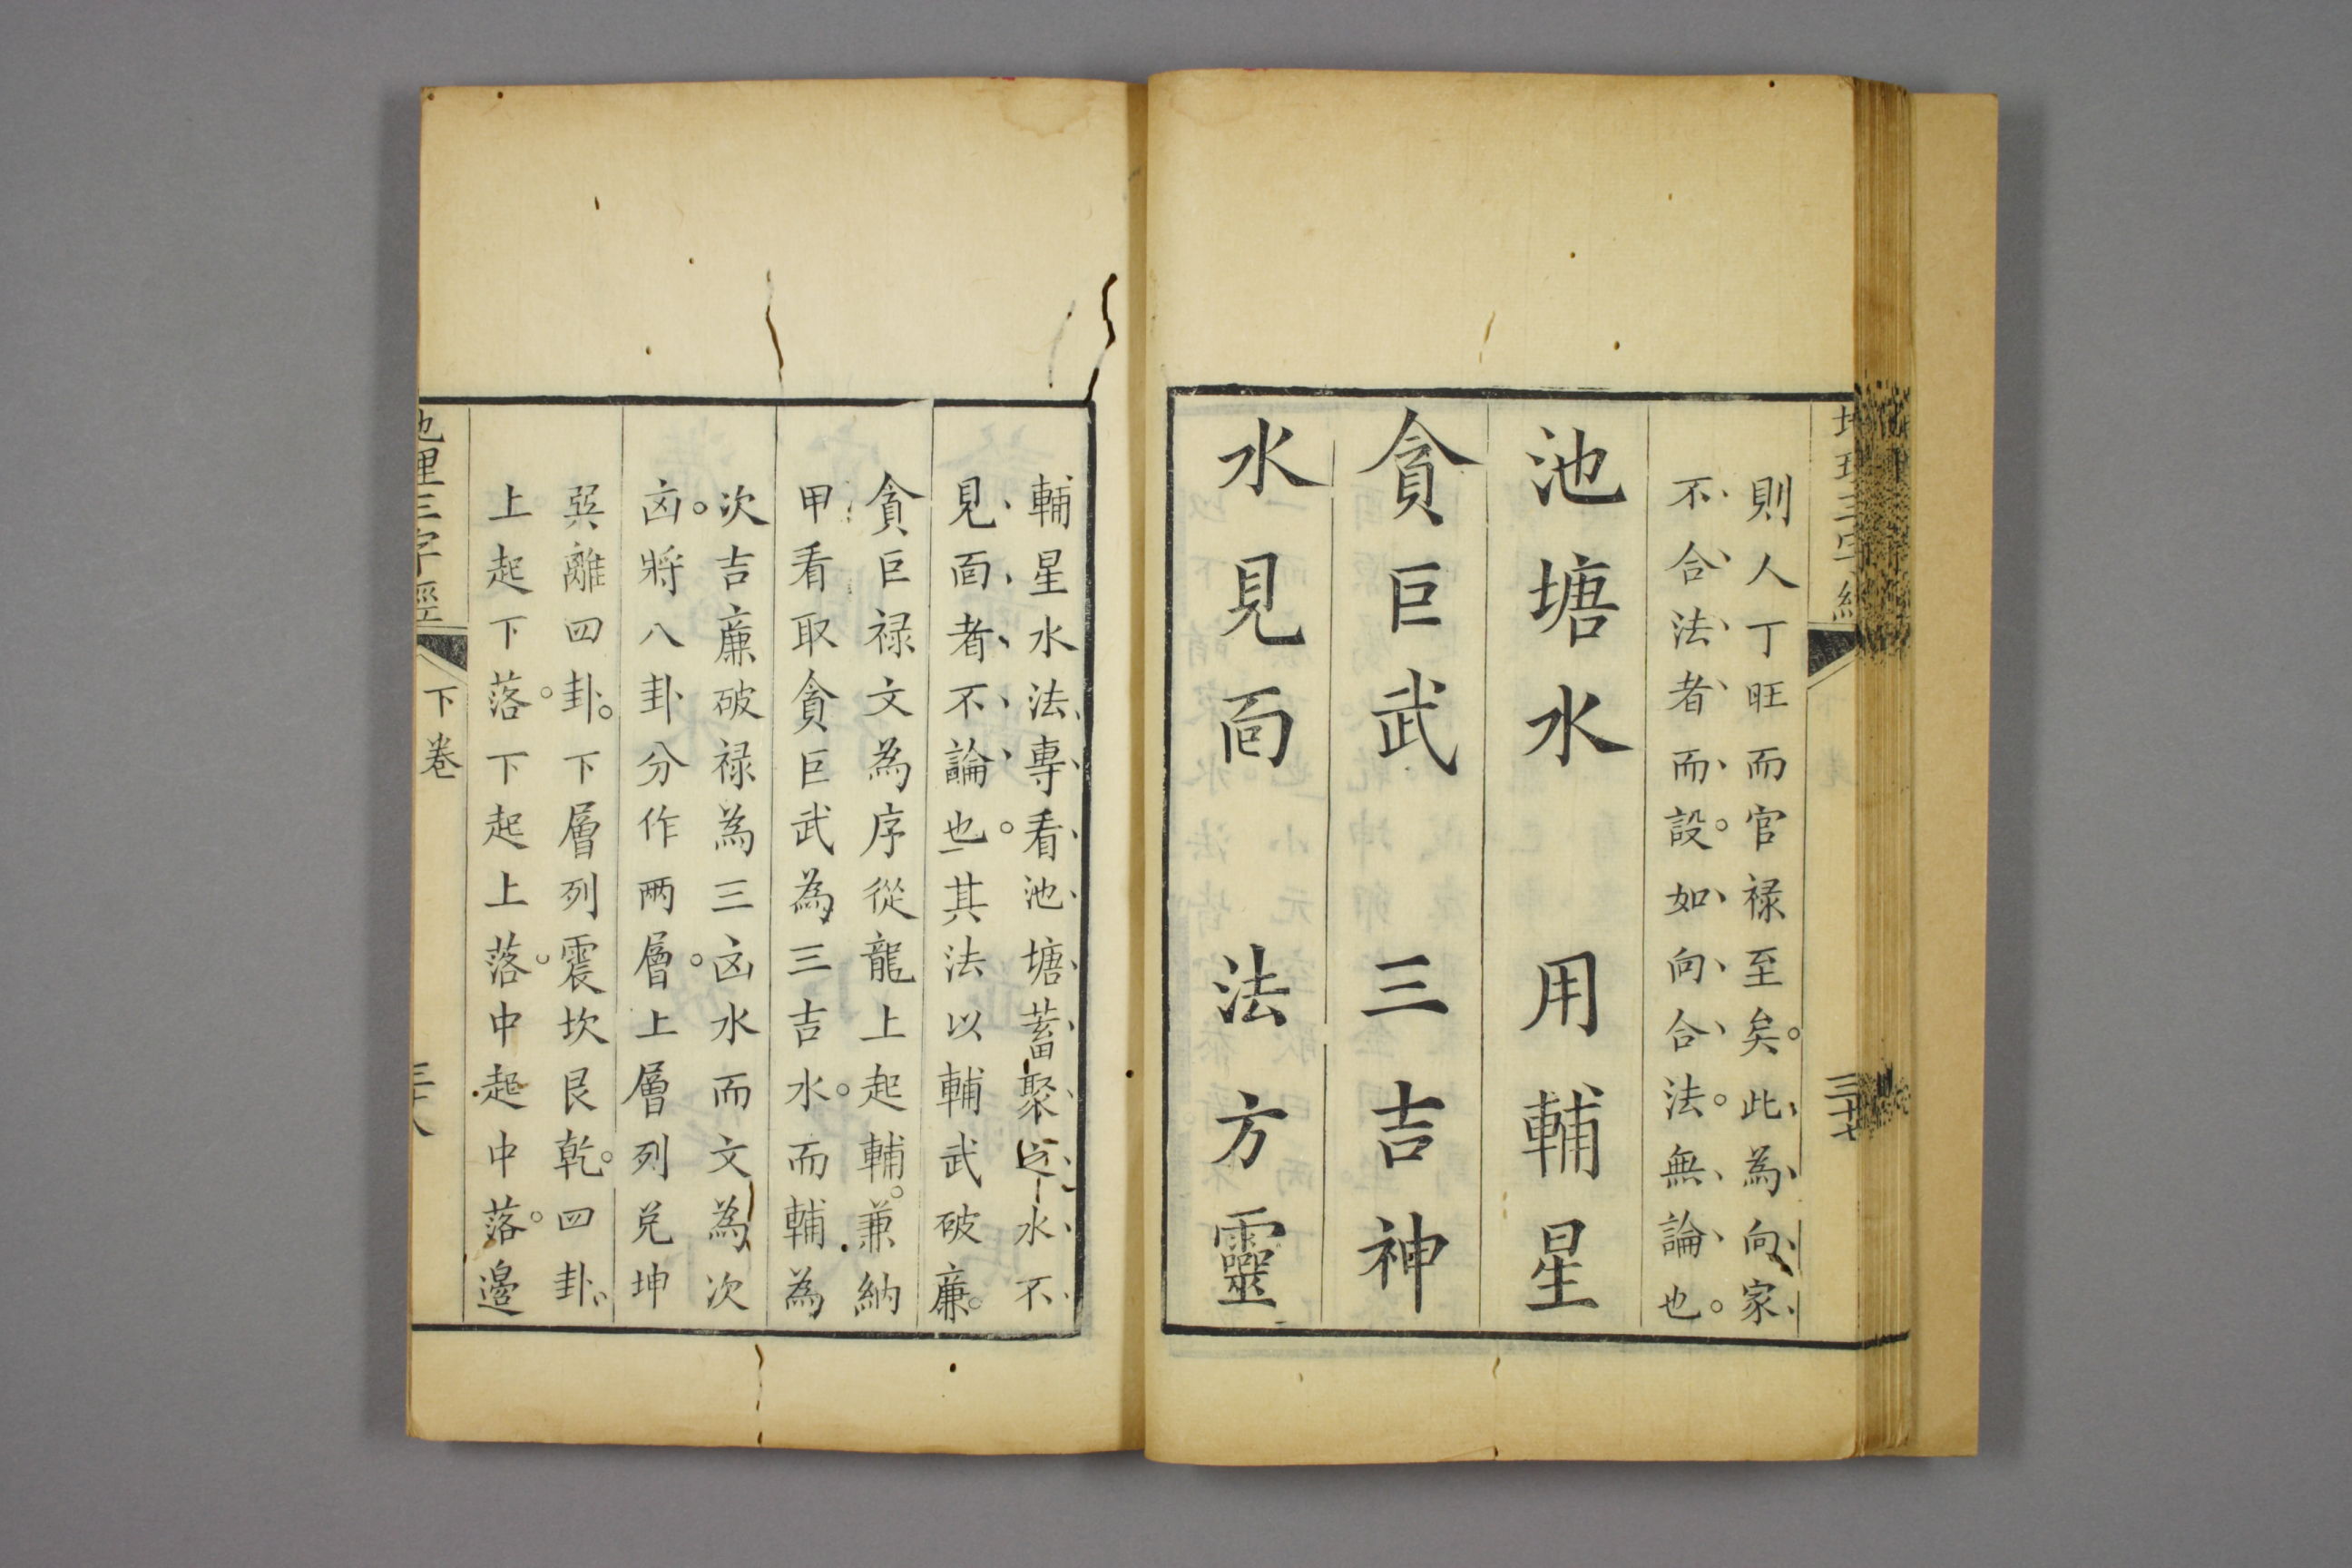 三十七
則人丁旺而官禄至矣。此為向家
不合法者而設。如向合法。無論也。
池塘水　用輔星
貪巨武　三吉神
水見面　法方靈
輔星水法專看池塘蓄聚之水不
見面者不論也。其法以輔武破廉。
貪巨禄文為序從龍上起輔。兼納
甲看取貪巨武為三吉水。而輔為
次吉廉破禄為三凶水而文為次
凶。將八卦分作兩層。上層列兌坤
巽離四卦。下層列震坎艮乾。四卦。
上起下落。下起上落。中起中落。邊
地理三字經
下卷